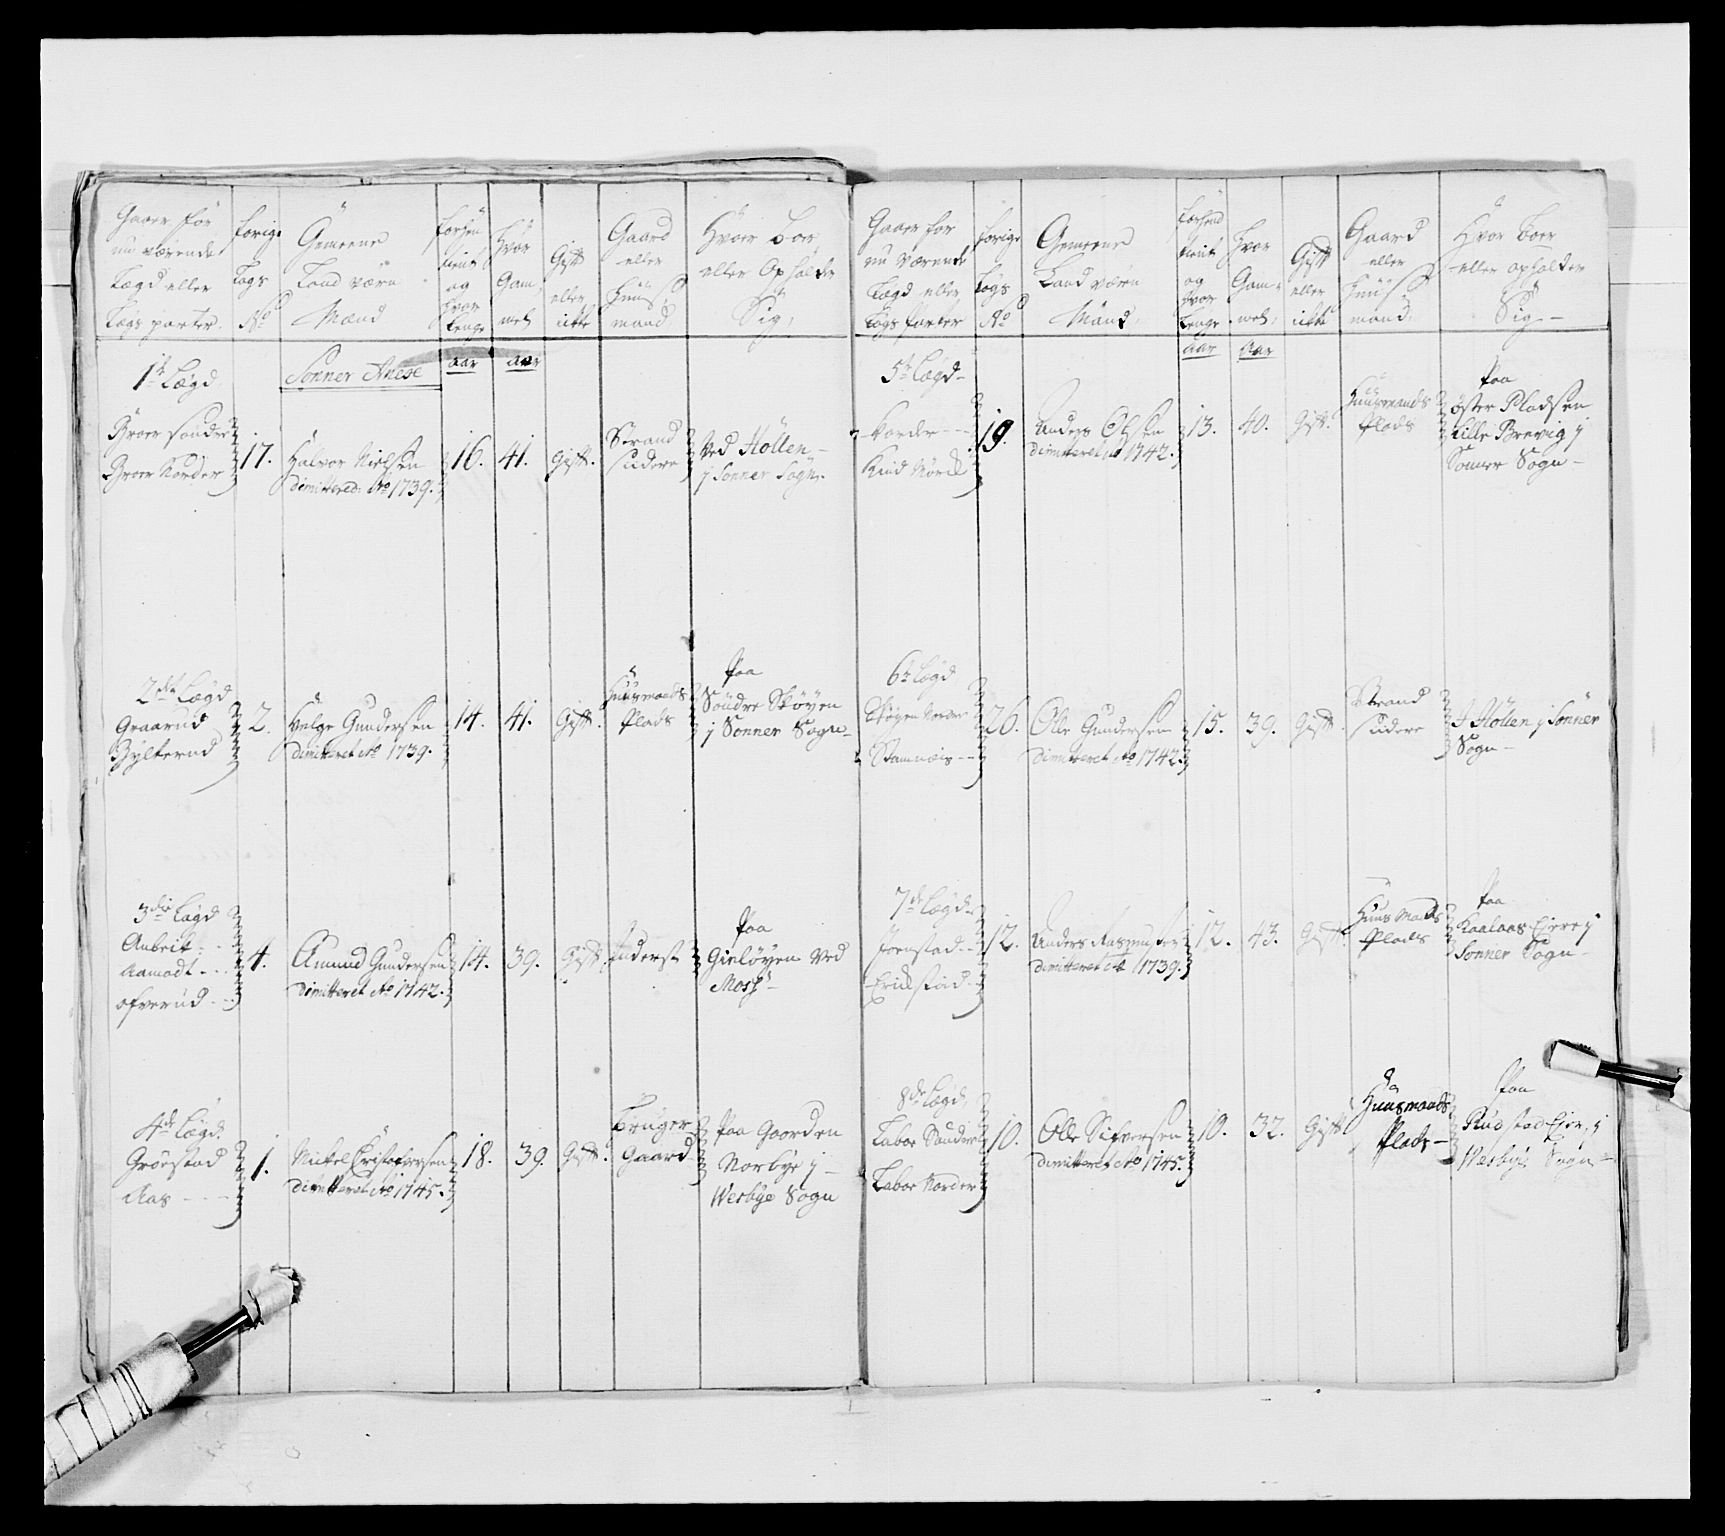 Gaaer for
nu værende
Lægd eller
Lægs parter.
forige
Lægs
No
Gemeene
Land værn
Mænd
forhen
tient
og
hvor
lenge
Hvor
Gam-
mel
Gift
eller
icke
Gaard
eller
Huus-
mand
Hvor boer
eller opholder
Sig.
aar
aar
1te Lægd
Sonner Anexe
Groer søndre
Groer Norder
17.
Halvor Nielsen
dimitteret Ao 1739.
16.
41.
Gift.
Strand
sidere
Ved Hollen
j Sonner Sogn.
2den Lægd
Graarud
Gylterud
2.
Helge Gundersen
dimitteret Ao 1739.
14.
41.
Gift.
Huusmands
Plads
Paa
Søndre Skøyen
j Sonner Sogn
3die Lægd
Aamodt
ofverud
4.
Amund Gundersen
dimitteret Ao 1742.
14.
39.
Gift
Inderst
Paa
Gieløyen ved
Moss
4de Lægd.
Grøestad
Aas
1.
Mickel Cristofersen
dimitteret Ao 1745.
18.
39.
Gift.
Bruger
Gaard
Paa Gaarden
Norbye j
Wesbye Sogn
Gaaer for
nu værende
Lægd eller
Lægs parter
forige
Lægs
No
Gemeene
Land værn
Mænd.
forhend
tient
og
hvor
lenge
Hvor
Gam-
mel.
Gift
eller
icke
Gaard
eller
Huus-
mand.
Hvor boer
eller opholder
Sig
aar
aar
5te Lægd
19.
Anders Olsen
dimitteret Ao 1742.
13.
40.
Gift.
Huusmands
Plads
Paa
øster Pladsen
Lille Brevig j
Sonner Sogn
6te Lægd
Skøyen Nordre
Stamnæs
26.
Olle Gundersen
dimitteret Ao 1742.
15.
39.
Gift.
Strand
sidere
I Hollen j Sonner
Sogn
7de Lægd
Joenstad
Erickstad
12.
Anders Rasmussen
dimitteret Ao 1739.
12.
43.
Gift.
Huus Mands
Plads
Paa
Kaalaas Eyere j
Sonner Sogn
8de Lægd.
Laboe Sønder
Laboe Norder
10.
Olle Sifversen
dimitteret Ao 1745.
10.
32.
Gift.
Huusmands
Plads
Paa
Rustad Eyer, j
Wesbye Sogn